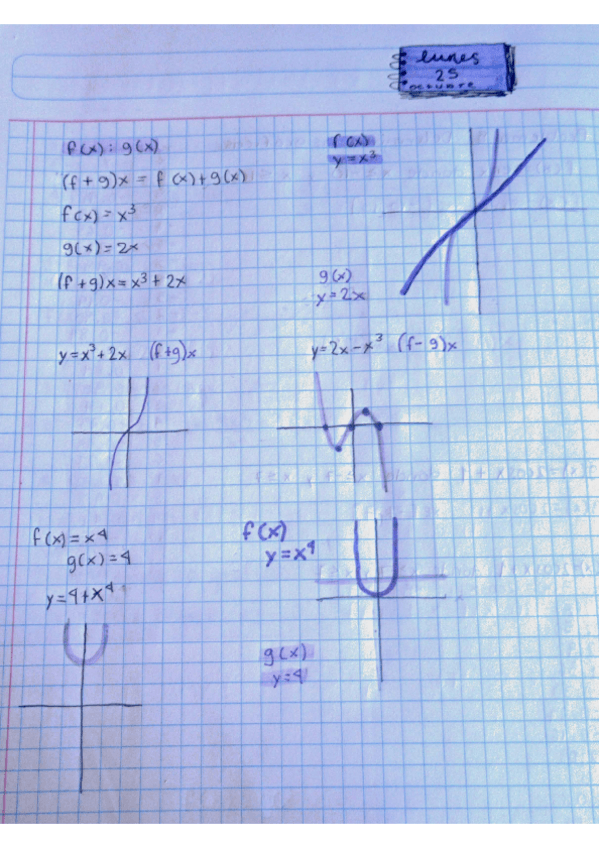 lunes
25
octubre
f(x): g(x)
(f+g)x = f(x)+g(x)
f(x) = x³
g(x) = 2x
(f+g)x = x³ + 2x
f(x)
y = x³
g(x)
y = 2x
y = x³ + 2x (f+g)x
y = 2x - x³ (f-g)x
f(x) = x⁴
g(x) = 4
y = 4 + x⁴
f(x)
y = x⁴
g(x)
y = 4